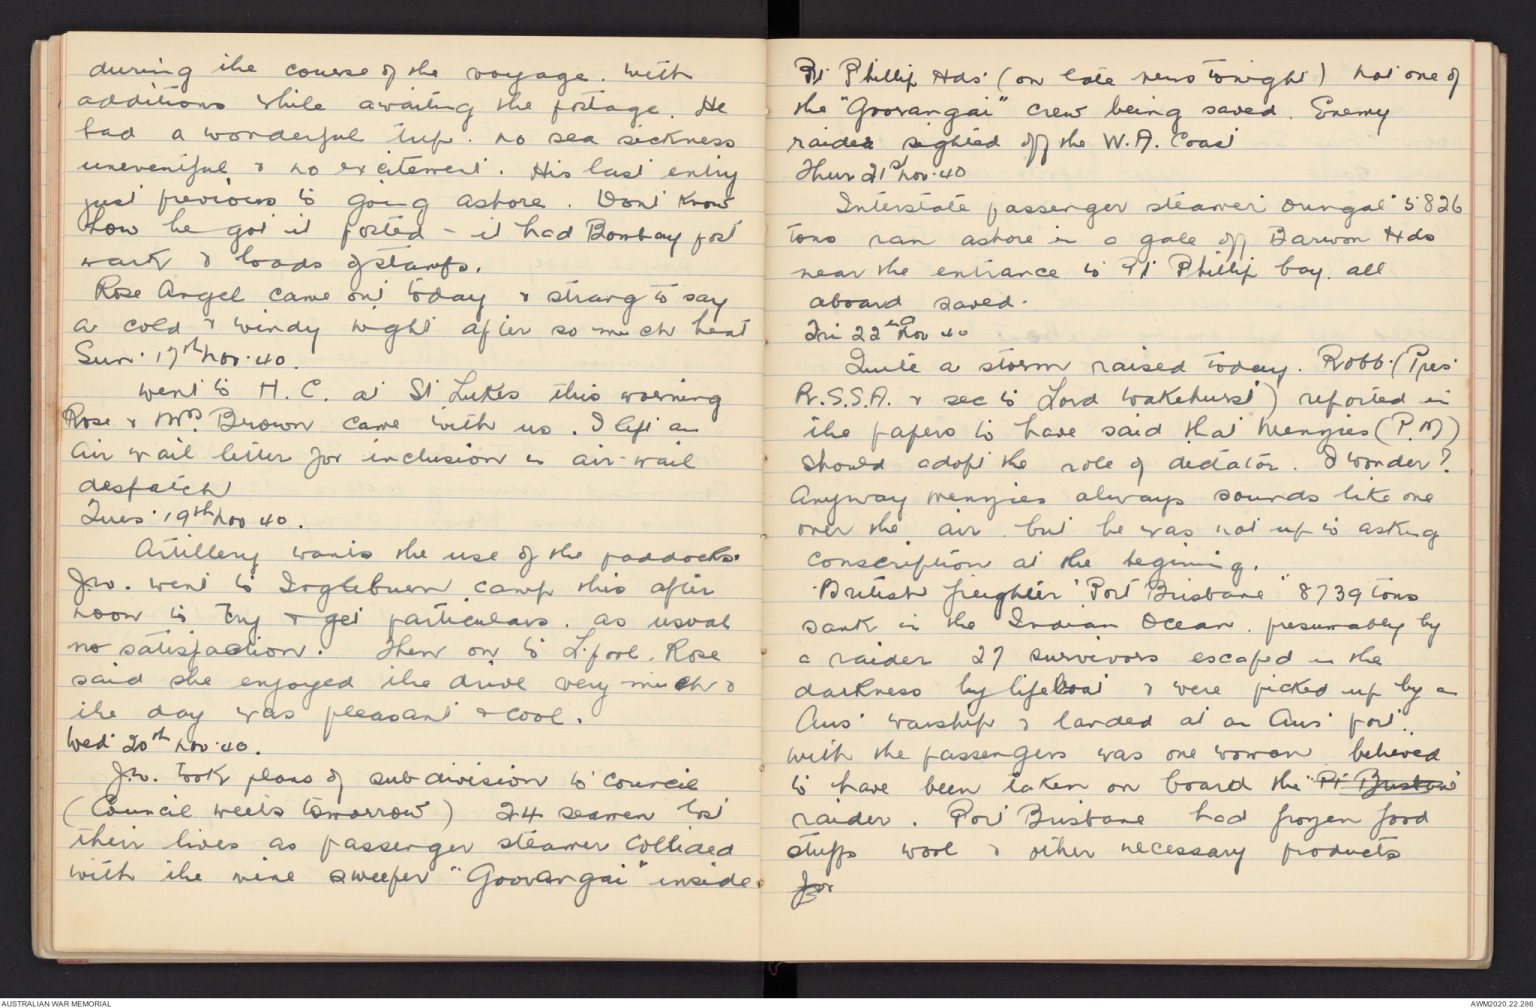 during the course of the voyage. With
additions while awaiting the postage. He
had a wonderful trip. no sea sickness
uneventful & no excitement. His last entry
just previous to going ashore. Dont know
how he got it posted - it had Bombay post
mark & loads of stamps.
Rose Angel came out today & strang to say
a cold & windy night after so much heat
Sun. 17th Nov. 40.
Went to H.C. at St Lukes this morning
Rose & Mrs. Brown came with us. I left an
Air mail letter for inclusion in air-mail
despatch
Tues. 19th Nov 40.
Artillery wants the use of the paddocks.
J.W. went to Ingleburn camp this after
noon to try & get particulars. as usual
no satisfaction. Then on to L.pool. Rose
said she enjoyed the drive very much &
the day was pleasant & cool.
Wed 20th Nov. 40.
J.W. took plans of subdivision to Council
(Council meets tomorrow) 24 seamen lost
their lives as passenger steamer collided
with the mine sweeper "Goorangai" inside
Pt Phillip Hds (on late news tonight) not one of
the "Goorangai" crew being saved. Enemy
raider sighted off the W.A. Coast
Thur 21st Nov. 40
Interstate passenger steamer Oungal 5826
tons ran ashore in a gale off Barwon Hds
near the entrance to Pt Phillip bay. all
aboard saved.
Fri 22nd Nov 40
Quite a storm raised today. Robb. (Pres.
R.S.S.A. & sec to Lord Wakehurst) reported in
the papers to have said that Menzies (P.M)
should adopt the role of dictator. I wonder?
Anyway Menzies always sounds like one
over the air but he was not up to asking
conscription at the begining.
British freighter "Port Brisbane" 8739 tons
sank in the Indian Ocean. presumably by
a raider 27 survivors escaped in the
darkness by lifeboat & were picked up by an
Aus. warship & landed at an Aus. port.
With the passengers was one woman believed
to have been taken on board the Pt Brisbane
raider. Port Brisbane had frozen food
stuffs wool & other necessary products
for
AUSTRALIAN WAR MEMORIAL
AWM2020.22.286